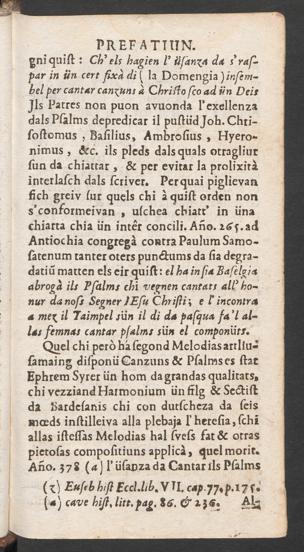 PREFATIUN.
gni quist : Ch' els hagien l' üsanza da s'ras-
par in ün cert fixà di ( la Domengia ) insem-
bel per cantar canzuns à Christo sco ad ün Deis
Jls Patres non puon avuonda l'exellenza
dals Psalms depredicar il pustüd Joh. Chri-
sostomus , Basilius, Ambrosius , Hyero-
nimus , &c. ils pleds dals quals otragliur
sun da chiattar , & per evitar la prolixità
interlasch dals scriver. Per quai piglievan
fich greiv sur quels chi à quist orden non
s'conformeivan , uschea chiatt' in üna
chiarta chia ün intêr concili. Año. 265. ad
Antiochia congregà contra Paulum Samo-
satenum tanter oters punctums da sia degra-
datiũ matten els eir quist : el ha in sia Baselgia
abrogà ils Psalms chi vegnen cantats all' ho-
nur da noss Segner JEsu Christi ; e l' incontra
a mez il Taimpel sün il di da pasqua fa'l al-
las femnas cantar psalms sün el componüts.
Quel chi però hà segond Melodias artlsu-
samaing disponü Canzuns & Psalms es stat
Ephrem Syrer ün hom da grandas qualitats,
chi vezziand Harmonium ün filg & Sectist
da Bardesanis chi con dutscheza da seis
mœds instilleiva alla plebaja l'heresia, schi
allas istessas Melodias hal svess fat & otras
pietosas compositiuns applicà , quel morit.
Año. 378 (a) l'üsanza da Cantar ils Psalms
(z) Euseb hist Eccl. lib. VII. cap. 77. p. 175.
(a) cave hist. litt. pag. 86. & 236. Al-